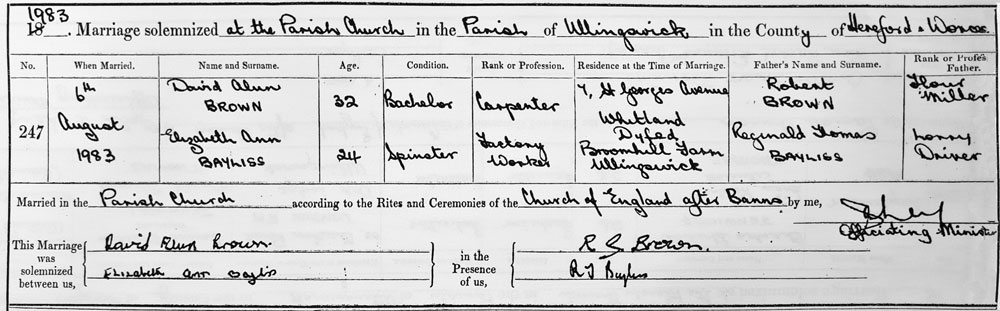 1983
18 . Marriage solemnized at the Parish Church in the Parish of Ullingswick in the County of Hereford & Worcs.
No. When Married. Name and Surname. Age. Condition. Rank or Profession. Residence at the Time of Marriage. Father's Name and Surname. Rank or Profes Father.
247
6th August 1983
David Alun BROWN 32 Bachelor Carpenter 7, St Georges Avenue Whitland Dyfed Robert BROWN Flour Miller
Elizabeth Ann BAYLISS 24 Spinster Factory Worker Broomhill Farm Ullingswick Reginald Thomas BAYLISS Lorry Driver
Married in the Parish Church according to the Rites and Ceremonies of the Church of England after Banns by me,
Officiating Minister
This Marriage was solemnized between us,
David Alun Brown
Elizabeth Ann Bayliss
in the Presence of us,
R S Brown.
R T Bayliss